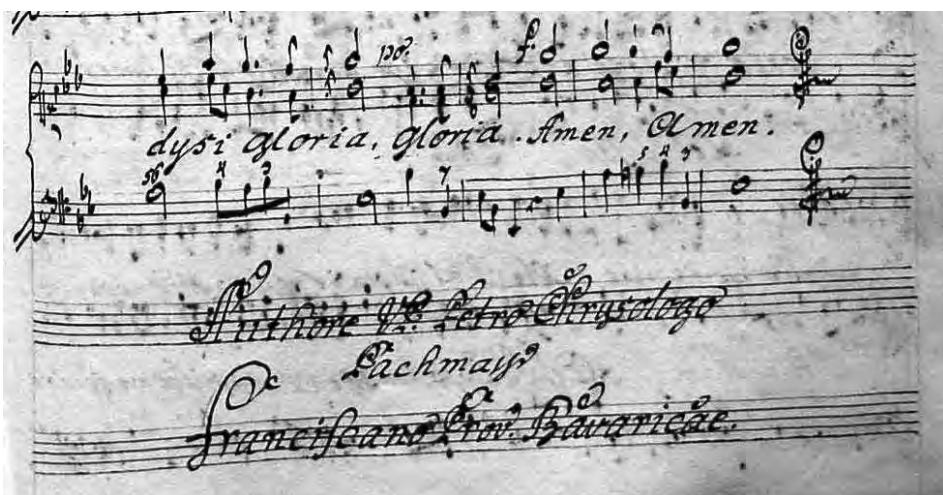 po. f.
dysi gloria, gloria. Amen, Amen.
56 4 3 7 5 4 3
Authore V. P. Petro Chrysologo
Pachmayr
Franciscano Prov. Bavaricae.